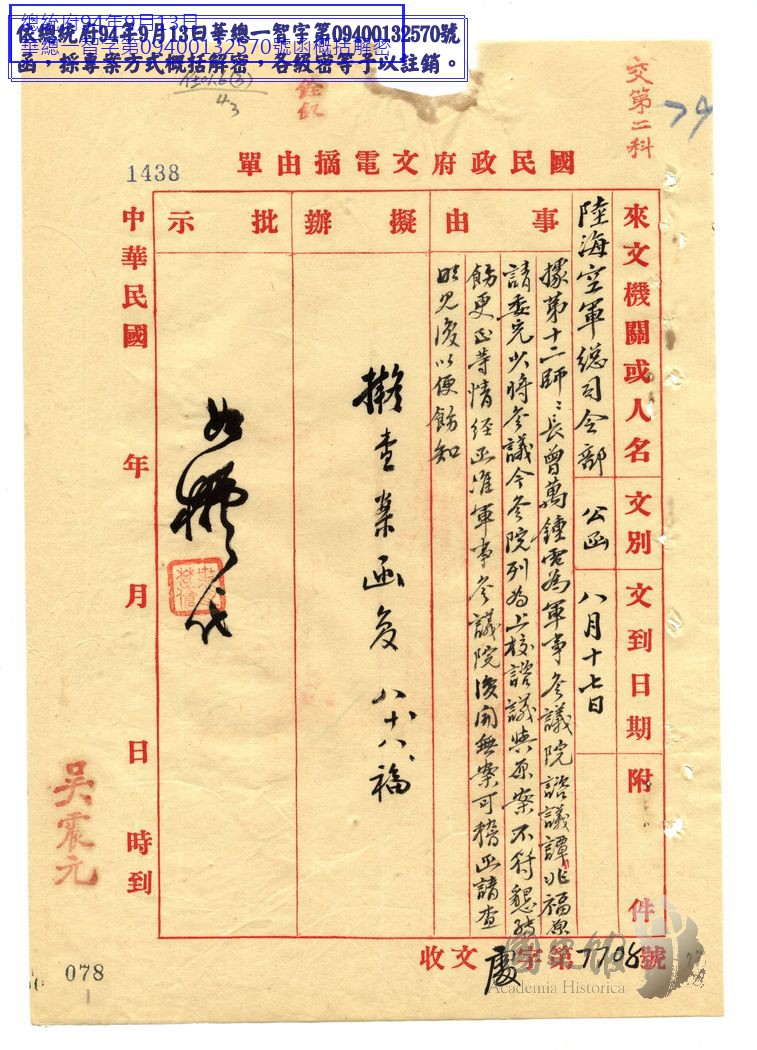 總統府94年9月13日
華總一智字第09400132570號函概括解密
依總統府94年9月13日華總一智字第09400132570號
函，採專案方式概括解密，各級密等予以註銷。
43
銓叙
交第二科
79
1438
國民政府文電摘由單
來文機關或人名
文別
文到日期
附件
陸海空軍總司令部
公函
八月十七日
事由
據第十二師﹅長曾萬鍾電為軍事參議院諮議譚兆福原
請委充少將參議今參院列為上校諮議與原案不符懇
飭更正等情經函准軍事參議院復開無案可稽函請查
明見復以便飭知
擬辦
擬查案函复 八、十八、福
批示
如擬
代
中華民國 年 月 日 時到
吳震元
收文處字第7708號
國史館
Academia Historica
078